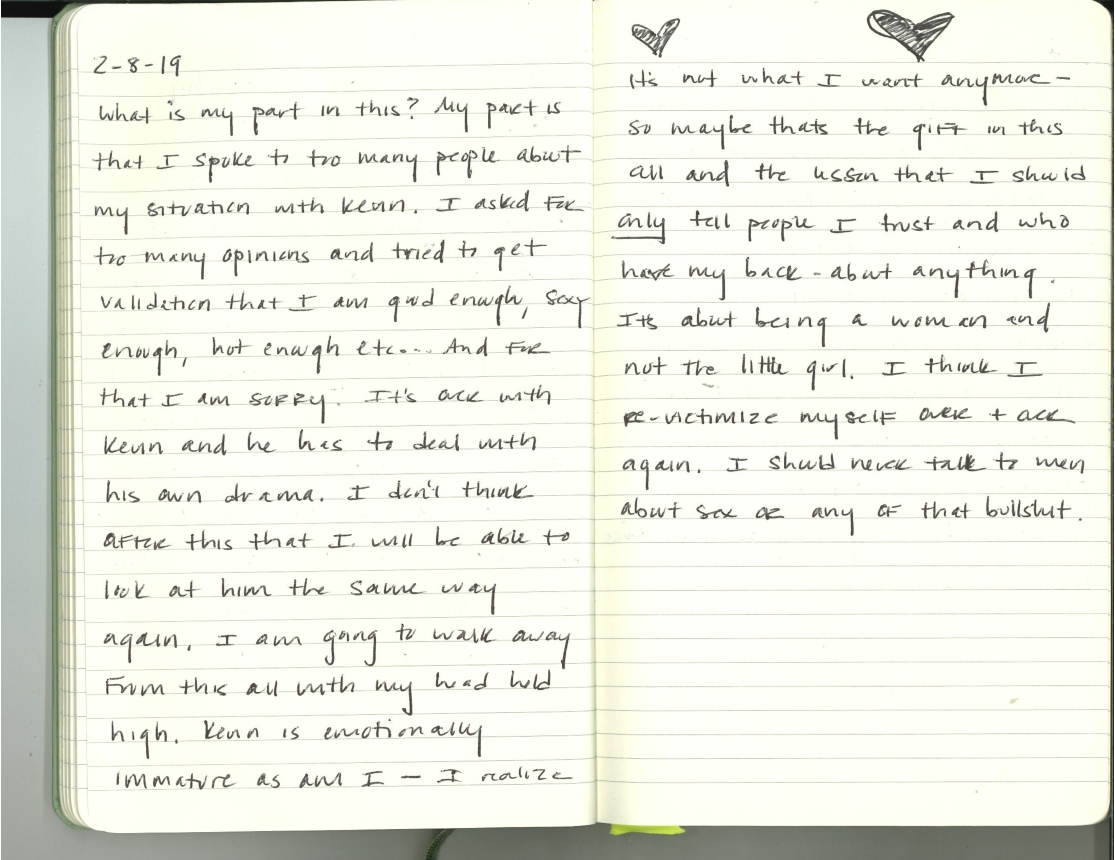 2-8-19
What is my part in this? My part is
that I spoke to too many people about
my situation with Kevin. I asked for
too many opinions and tried to get
validation that I am good enough, sexy
enough, hot enough etc.... And for
that I am sorry. It's over with
Kevin and he has to deal with
his own drama. I don't think
after this that I will be able to
look at him the same way
again. I am going to walk away
From this all with my head held
high. Kevin is emotionally
immature as am I — I realize
It's not what I want anymore -
so maybe thats the gift in this
all and the lesson that I should
only tell people I trust and who
have my back - about anything.
Its about being a woman and
not the little girl. I think I
re-victimize myself over + over
again. I should never talk to men
about sex or any of that bullshit.